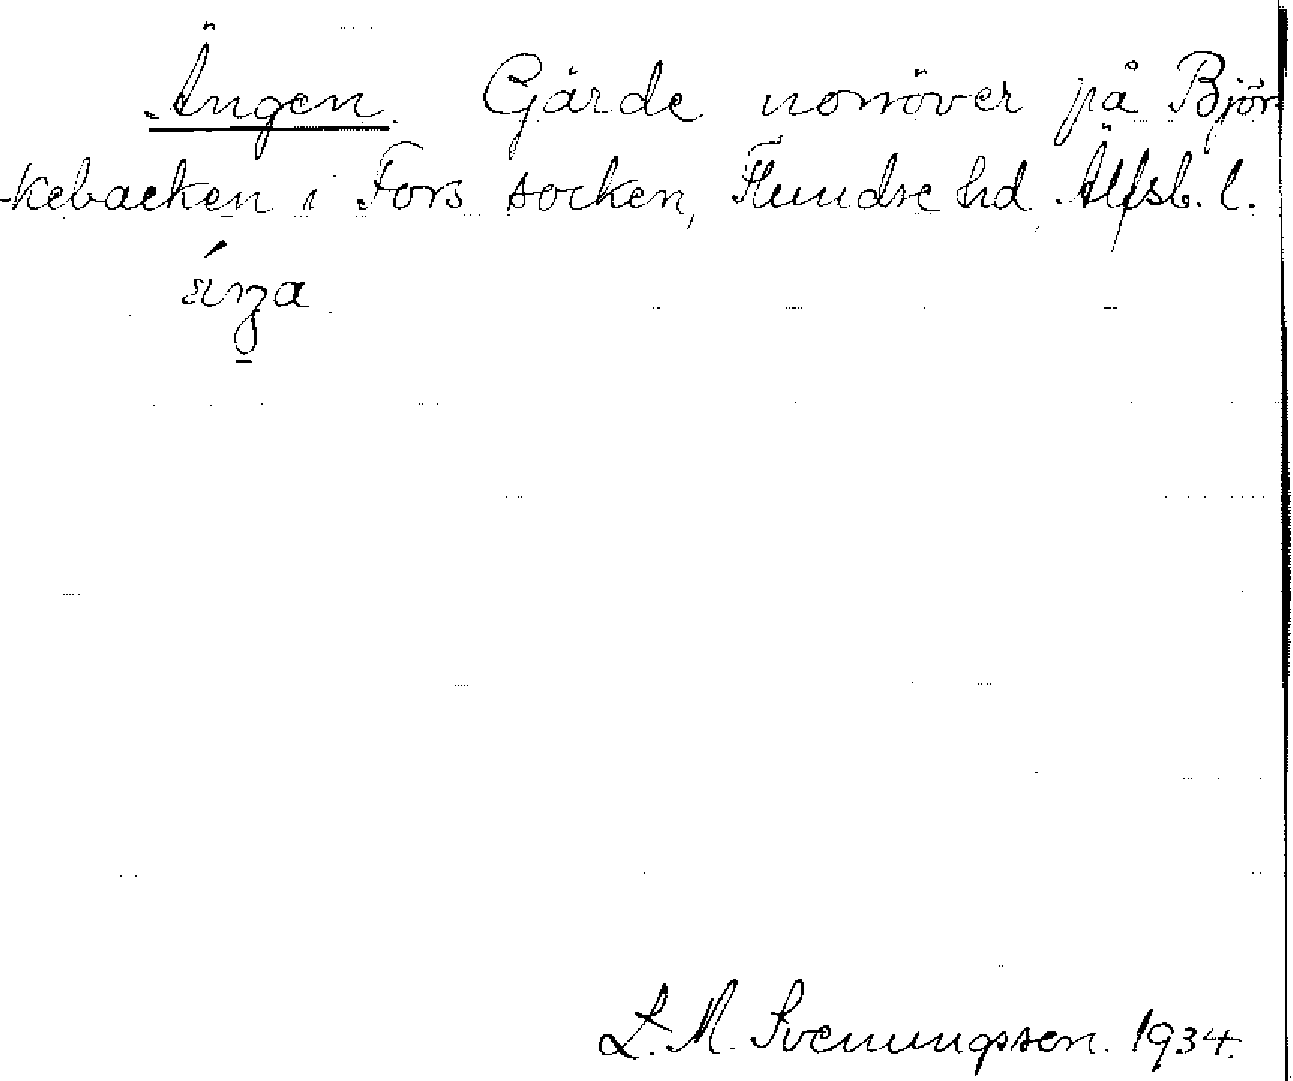 Ängen. Gärde norröver på Björ-
kebacken i Fors socken, Flundre hd, Älfsb. l.
L. M. Svenungsson. 1934.